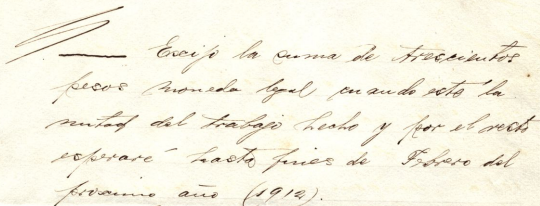 — Exijo la suma de trescientos
pesos moneda legal cuando esté la
mitad del trabajo hecho y por el resto
esperaré hasta fines de Febrero del
proximo año (1912).